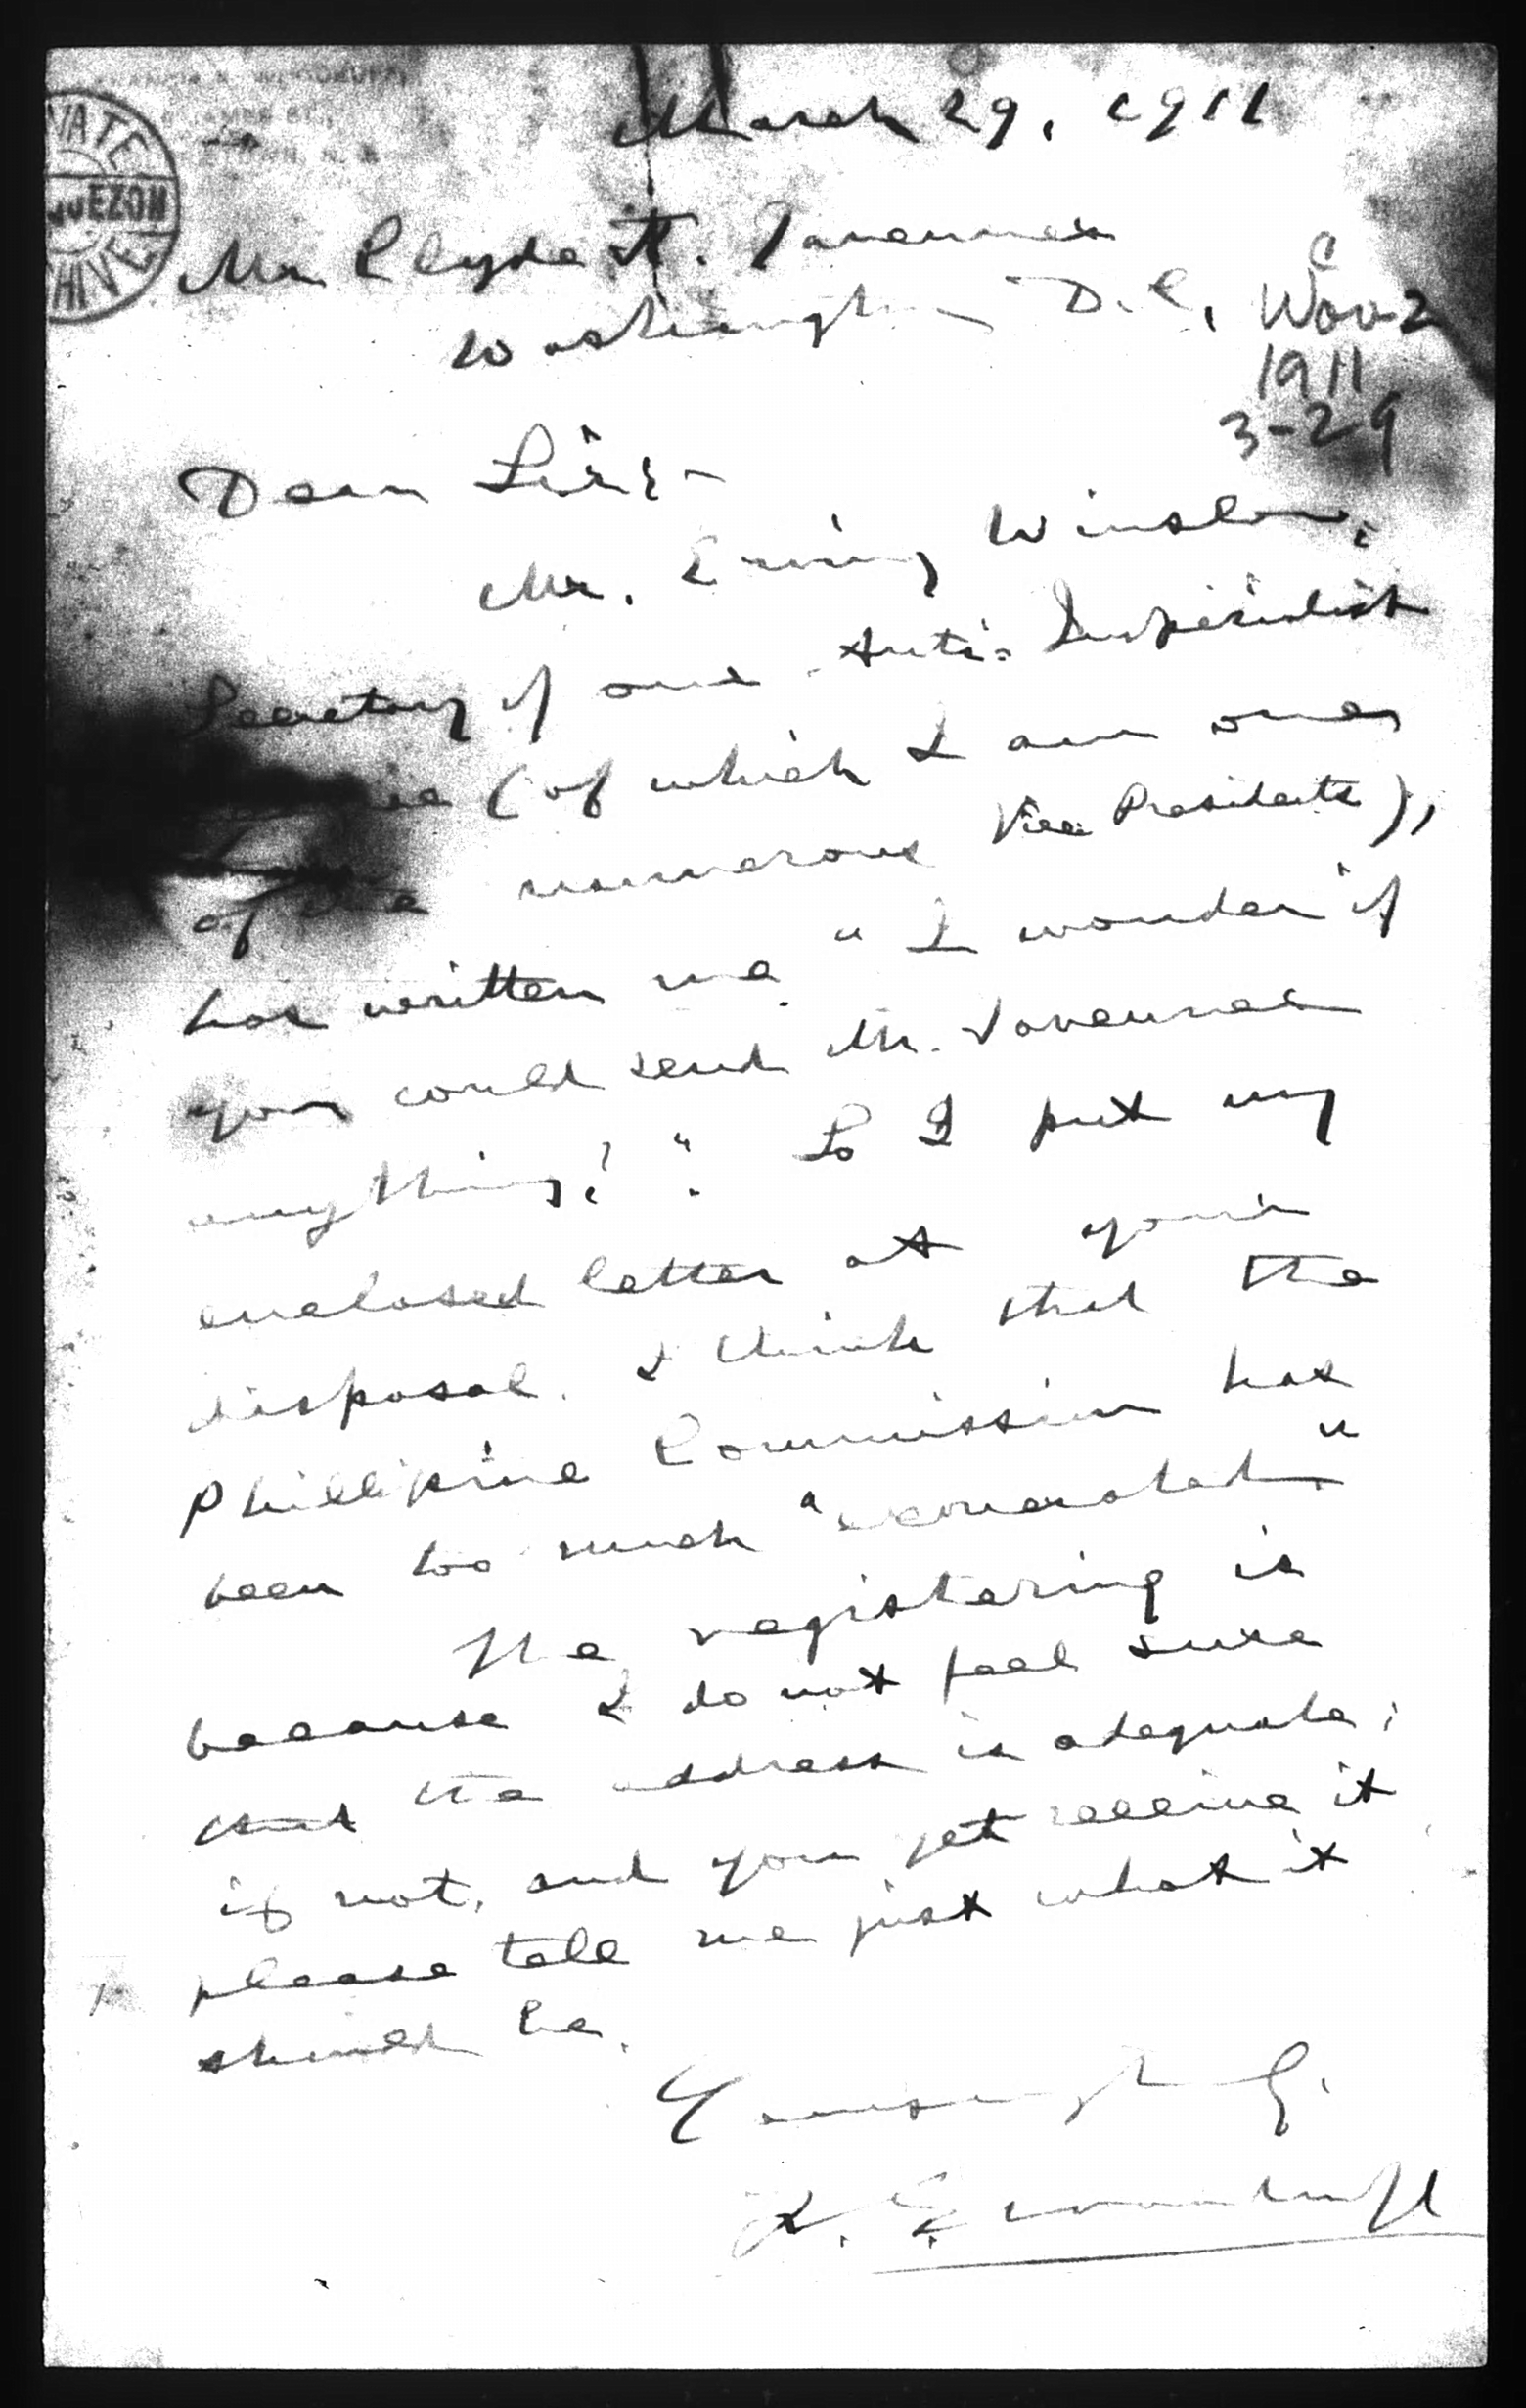 March 29, 1911
VATE
QUEZON
HIVE
Mr Clyde H. Tavenner
Washington D.C.
C
Woo-2
1911
3-29
Dear Sir:-
Mr. Erving Winslow,
Secretary of our Anti-Imperialist
(of which I am one
of the numerous Vice Presidents),
has written me "I wonder if
you could send Mr. Tavenner
anything?". So I put my
enclosed letter at your
disposal. I think that the
Phillipine Commission has
been too much "venerated."
The registering is
because I do not feel sure
that the address is adequate;
if not, and you yet receive it
please tell me just what it
should be.
Yours truly.
E. Woodruff